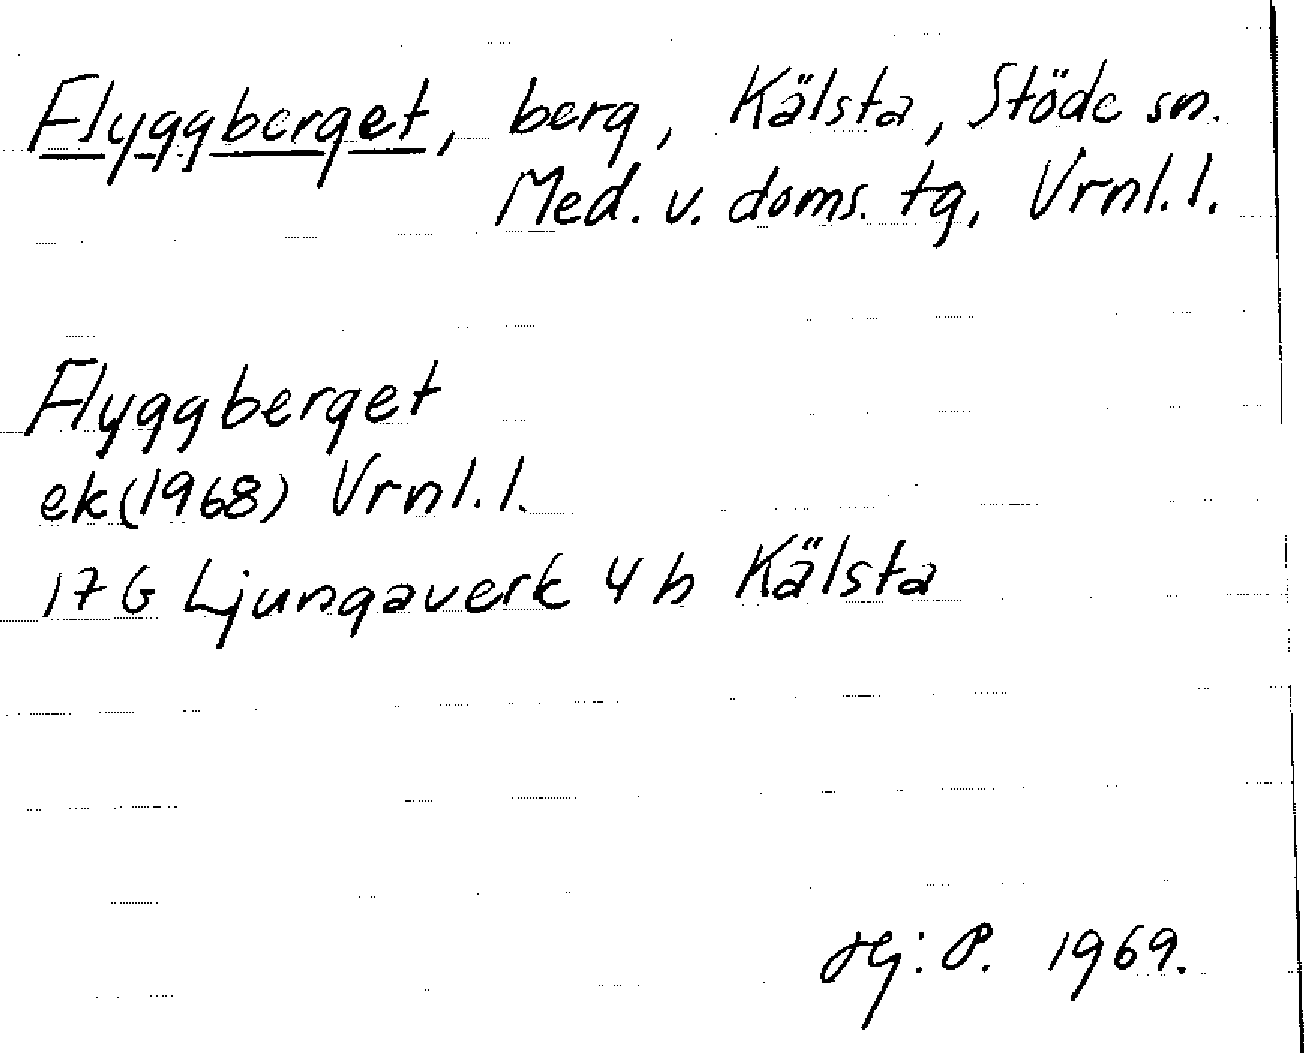 Flyggberget, berg, Kälsta, Stöde sn.
Med. v. doms. tg, Vrnl. l.
Flyggberget
ek (1968) Vrnl. l.
17 G Ljungaverk 4 h Kälsta
Hj: P. 1969.